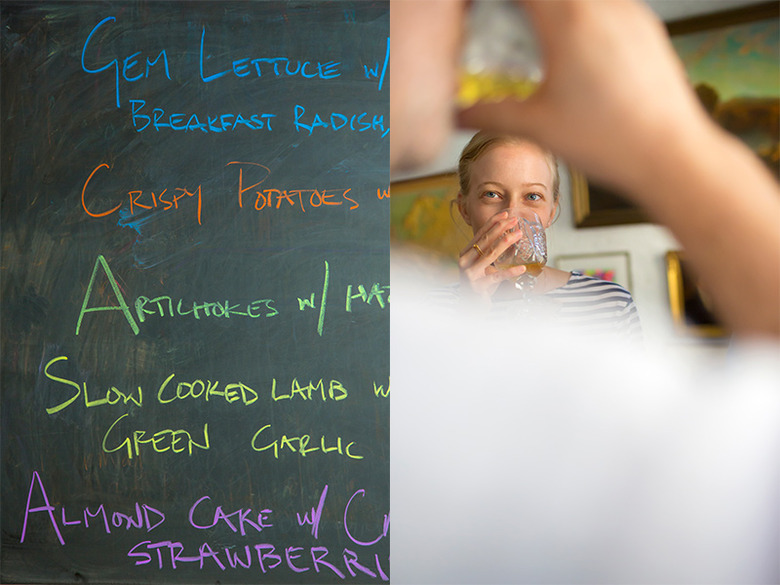 GEM LETTUCE W/
BREAKFAST RADISH,
CRISPY POTATOES
ARTICHOKES W/
SLOW COOKED LAMB
GREEN GARLIC
ALMOND CAKE W/